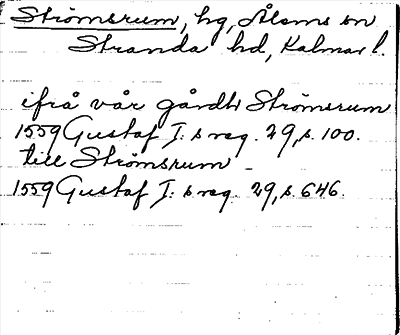 Strömsrum, hg, Ålems sn
Stranda hd, Kalmar l.
ifrå vår gårdh Strömsrum
1559 Gustaf I:s reg. 29, s. 100.
till Strömsrum
1559 Gustaf I:s reg. 29, s. 646.